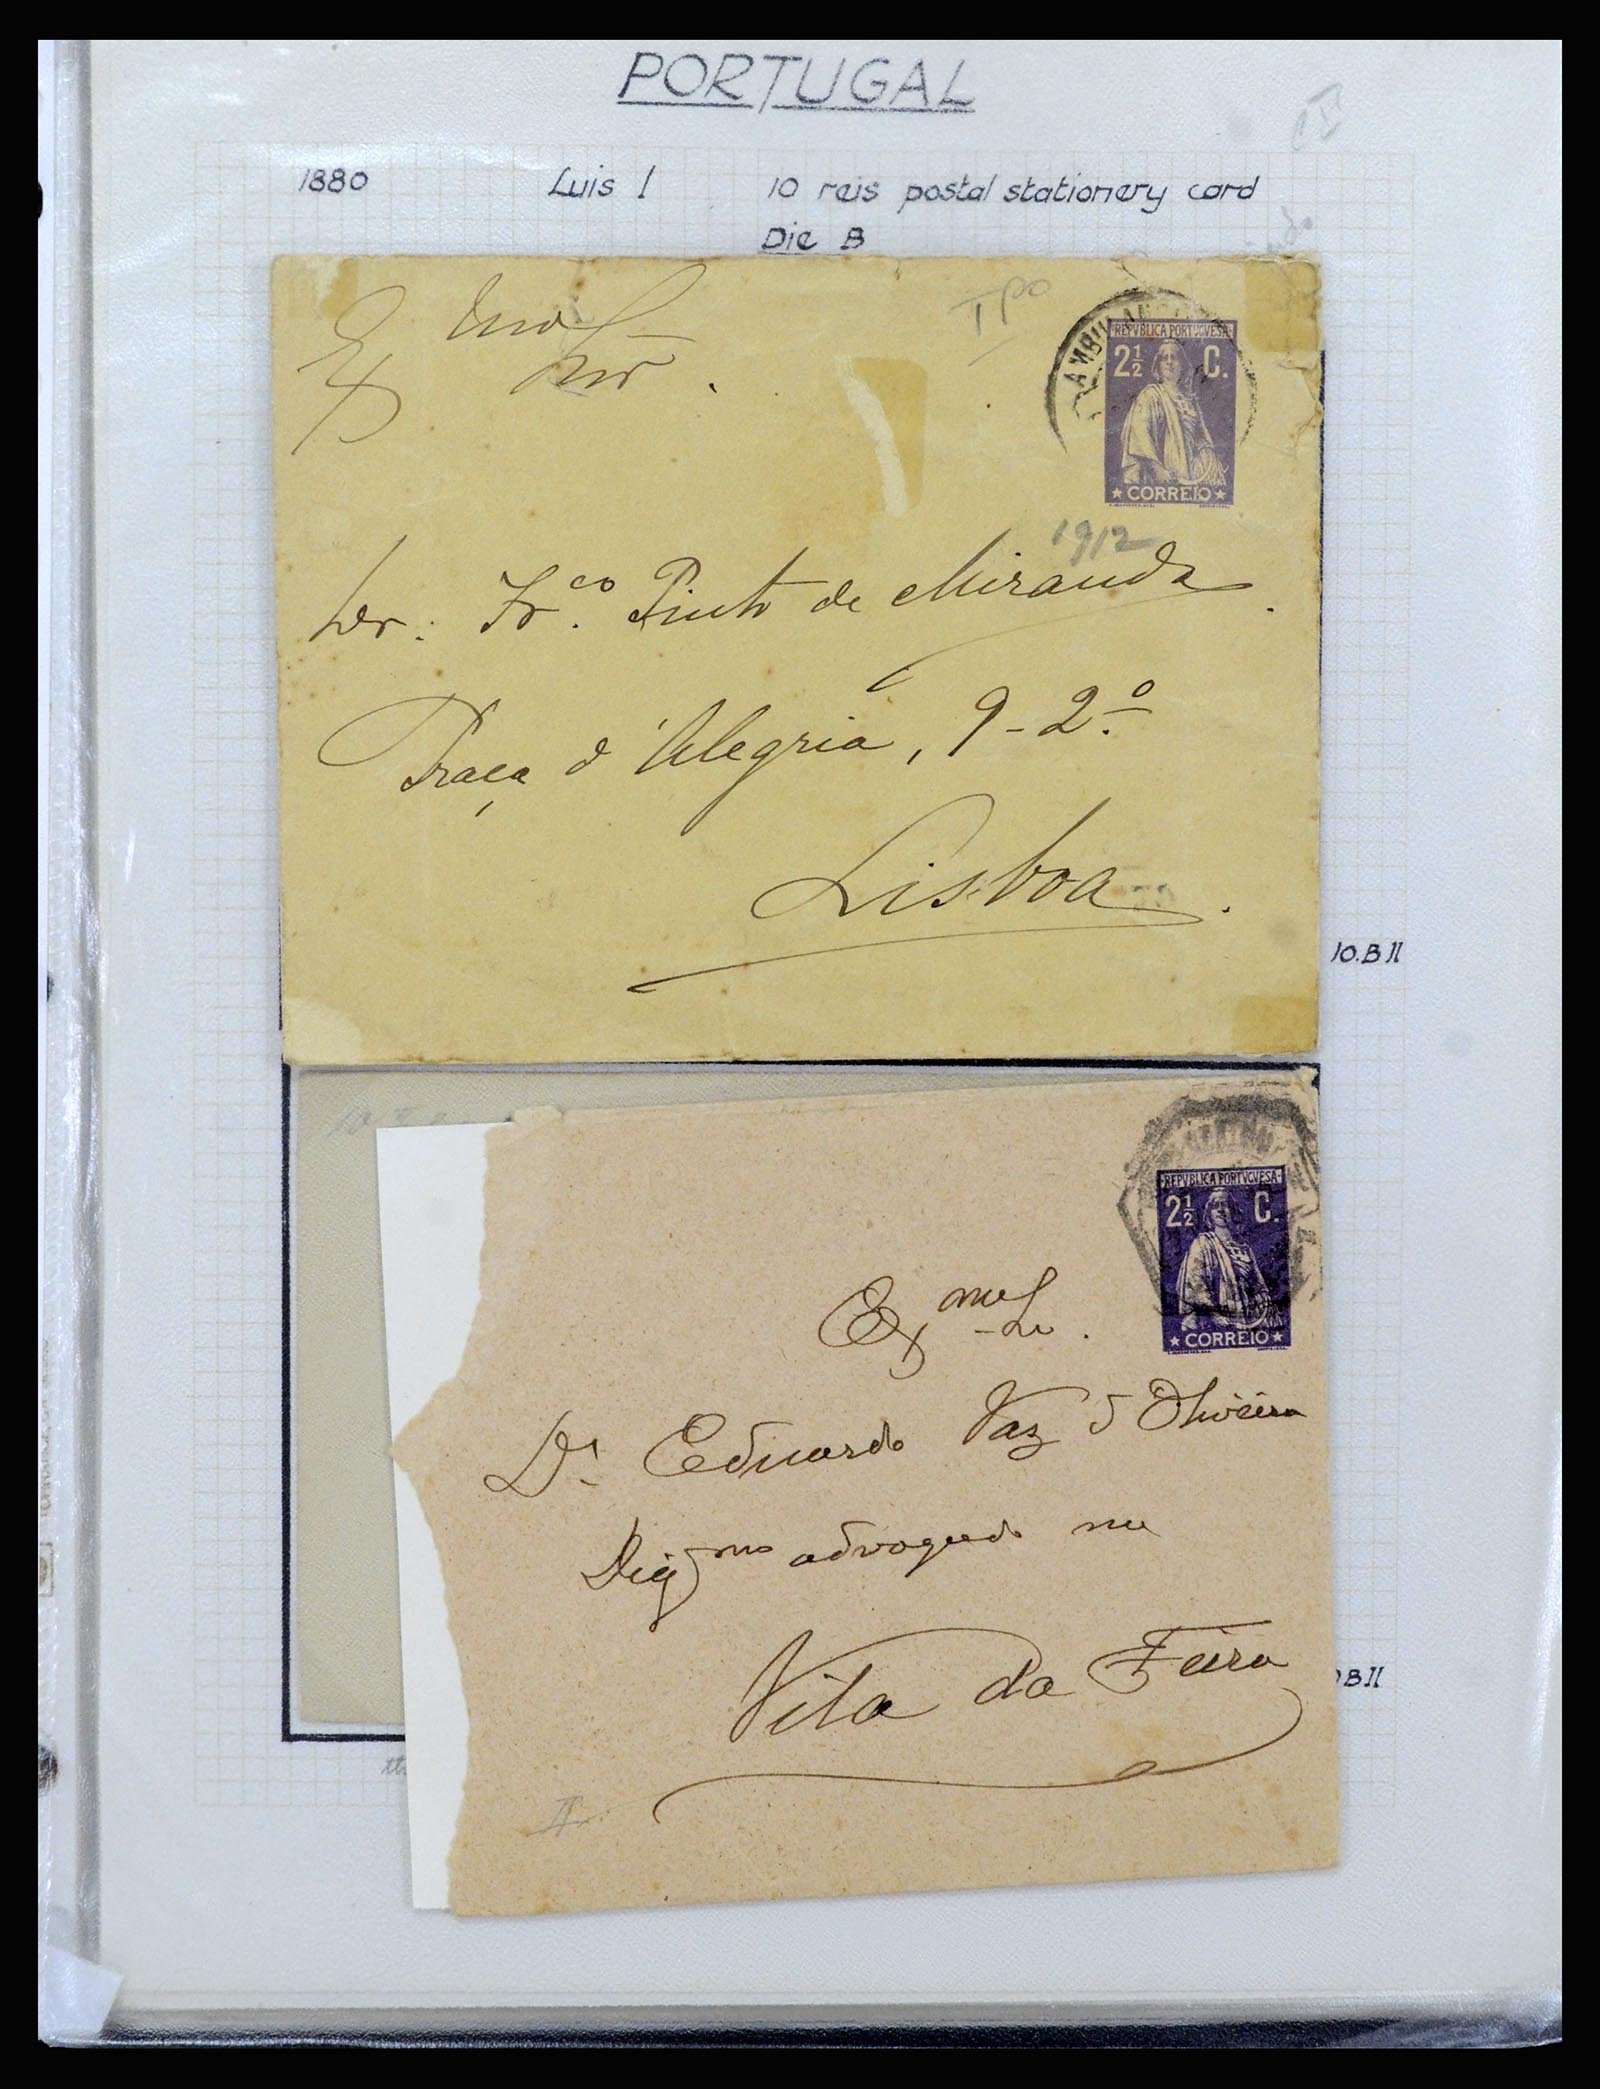 PORTUGAL
1880 Luis I 10 reis postal stationery card
Die B
TPO
Exmo Snr.
AMBULAN
REPVBLICA PORTVGVESA
2½ C.
CORREIO
1912
Dr. Frco. Pinto de Miranda.
Praça d'Alegria, 9-2.º
Lisboa.
10.B II
REPVBLICA PORTVGVESA
2½ C.
CORREIO
Exmo Sr.
Dr. Eduardo Vaz d'Oliveira
Digmo advogado na
Vila da Feira
B II